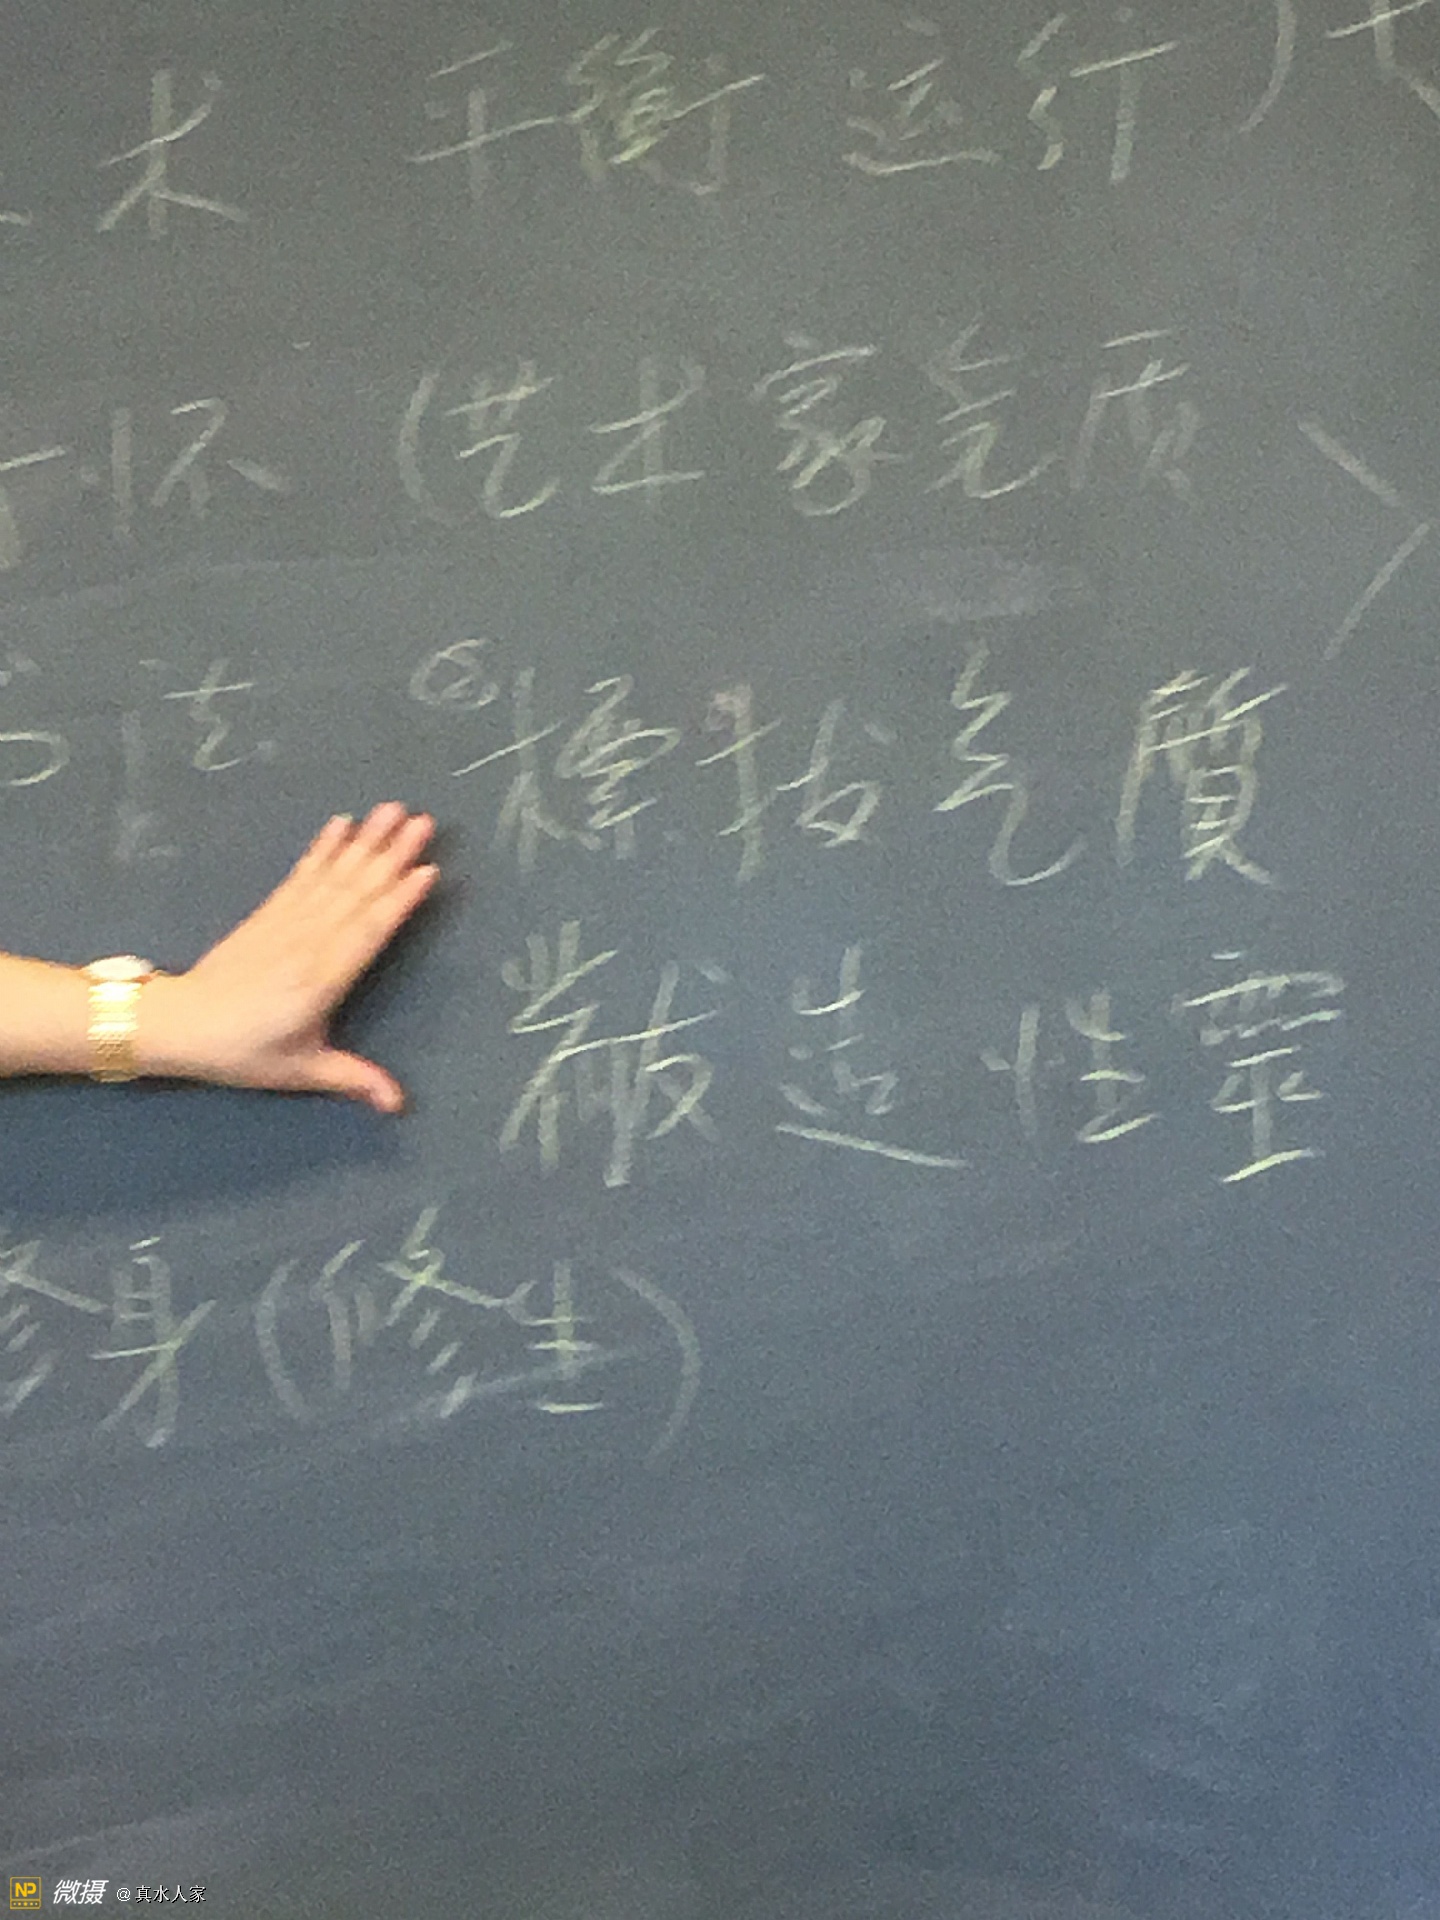 术 平衡运行)
怀 (艺术家气质
法 ②標拔气質
黻造性靈
修身(修生)
NP 微摄 @真水人家